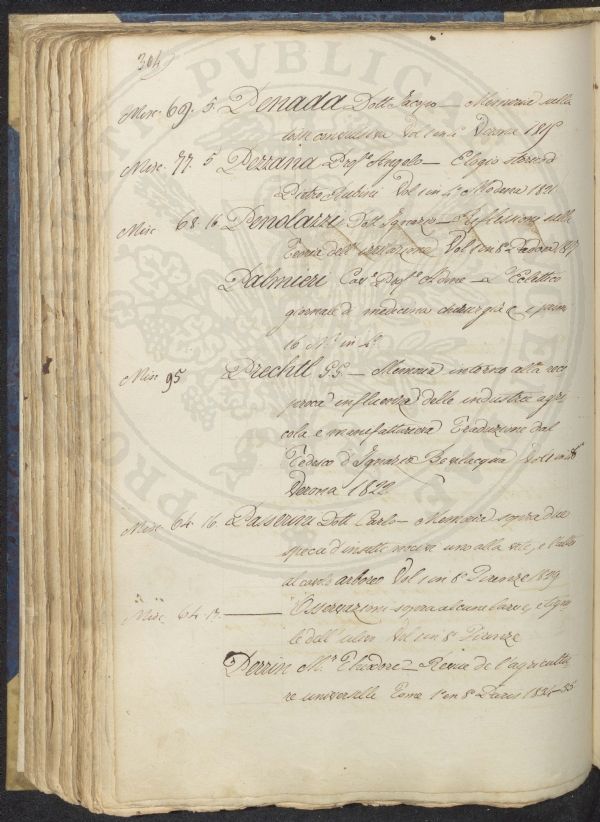 304
Misc. 69. 5. Penada Dott. Jacopo — Memoria sulla
tosse convulsiva Vol. 1 in 4° Verona 1815
Misc. 77. 5 Pezzana Prof.e Angelo — Elogio storico di
Pietro Rubini Vol. 1 in 4° Modena 1821
Misc 68. 16 Penolazzi Dott. Ignazio — Riflessioni sulla
Teoria dell' irritazione Vol 1 in 8° Padova 1817
Palmieri Cav.e Prof.e — L'Eclettico
giornale di medicina chirurgia e
16 N.i in 4°
Misc 95 Prechtl — Memoria intorno alla reci
proca influenza delle industrie agri
cola e manifatturiera Traduzione dal
Tedesco d'Ignazio Bevilacqua Vol 1 in 8°
Verona 1822
Misc. 64. 16. Passerini Dott Carlo — Memoria sopra due
specie d'insetti nocive uno alla vite, e l'altro
al cavolo arboreo Vol 1 in 8° Firenze 1829
Misc. 64. 17. ——— Osservazioni sopra alcune larve, e
dell' Vol 1 in 8° Firenze
Perrin M.r Théodore — Revue de l'agricultu
re universelle Tome 1 en 8° Paris 1834-35
PVBLICA
PATAVINO